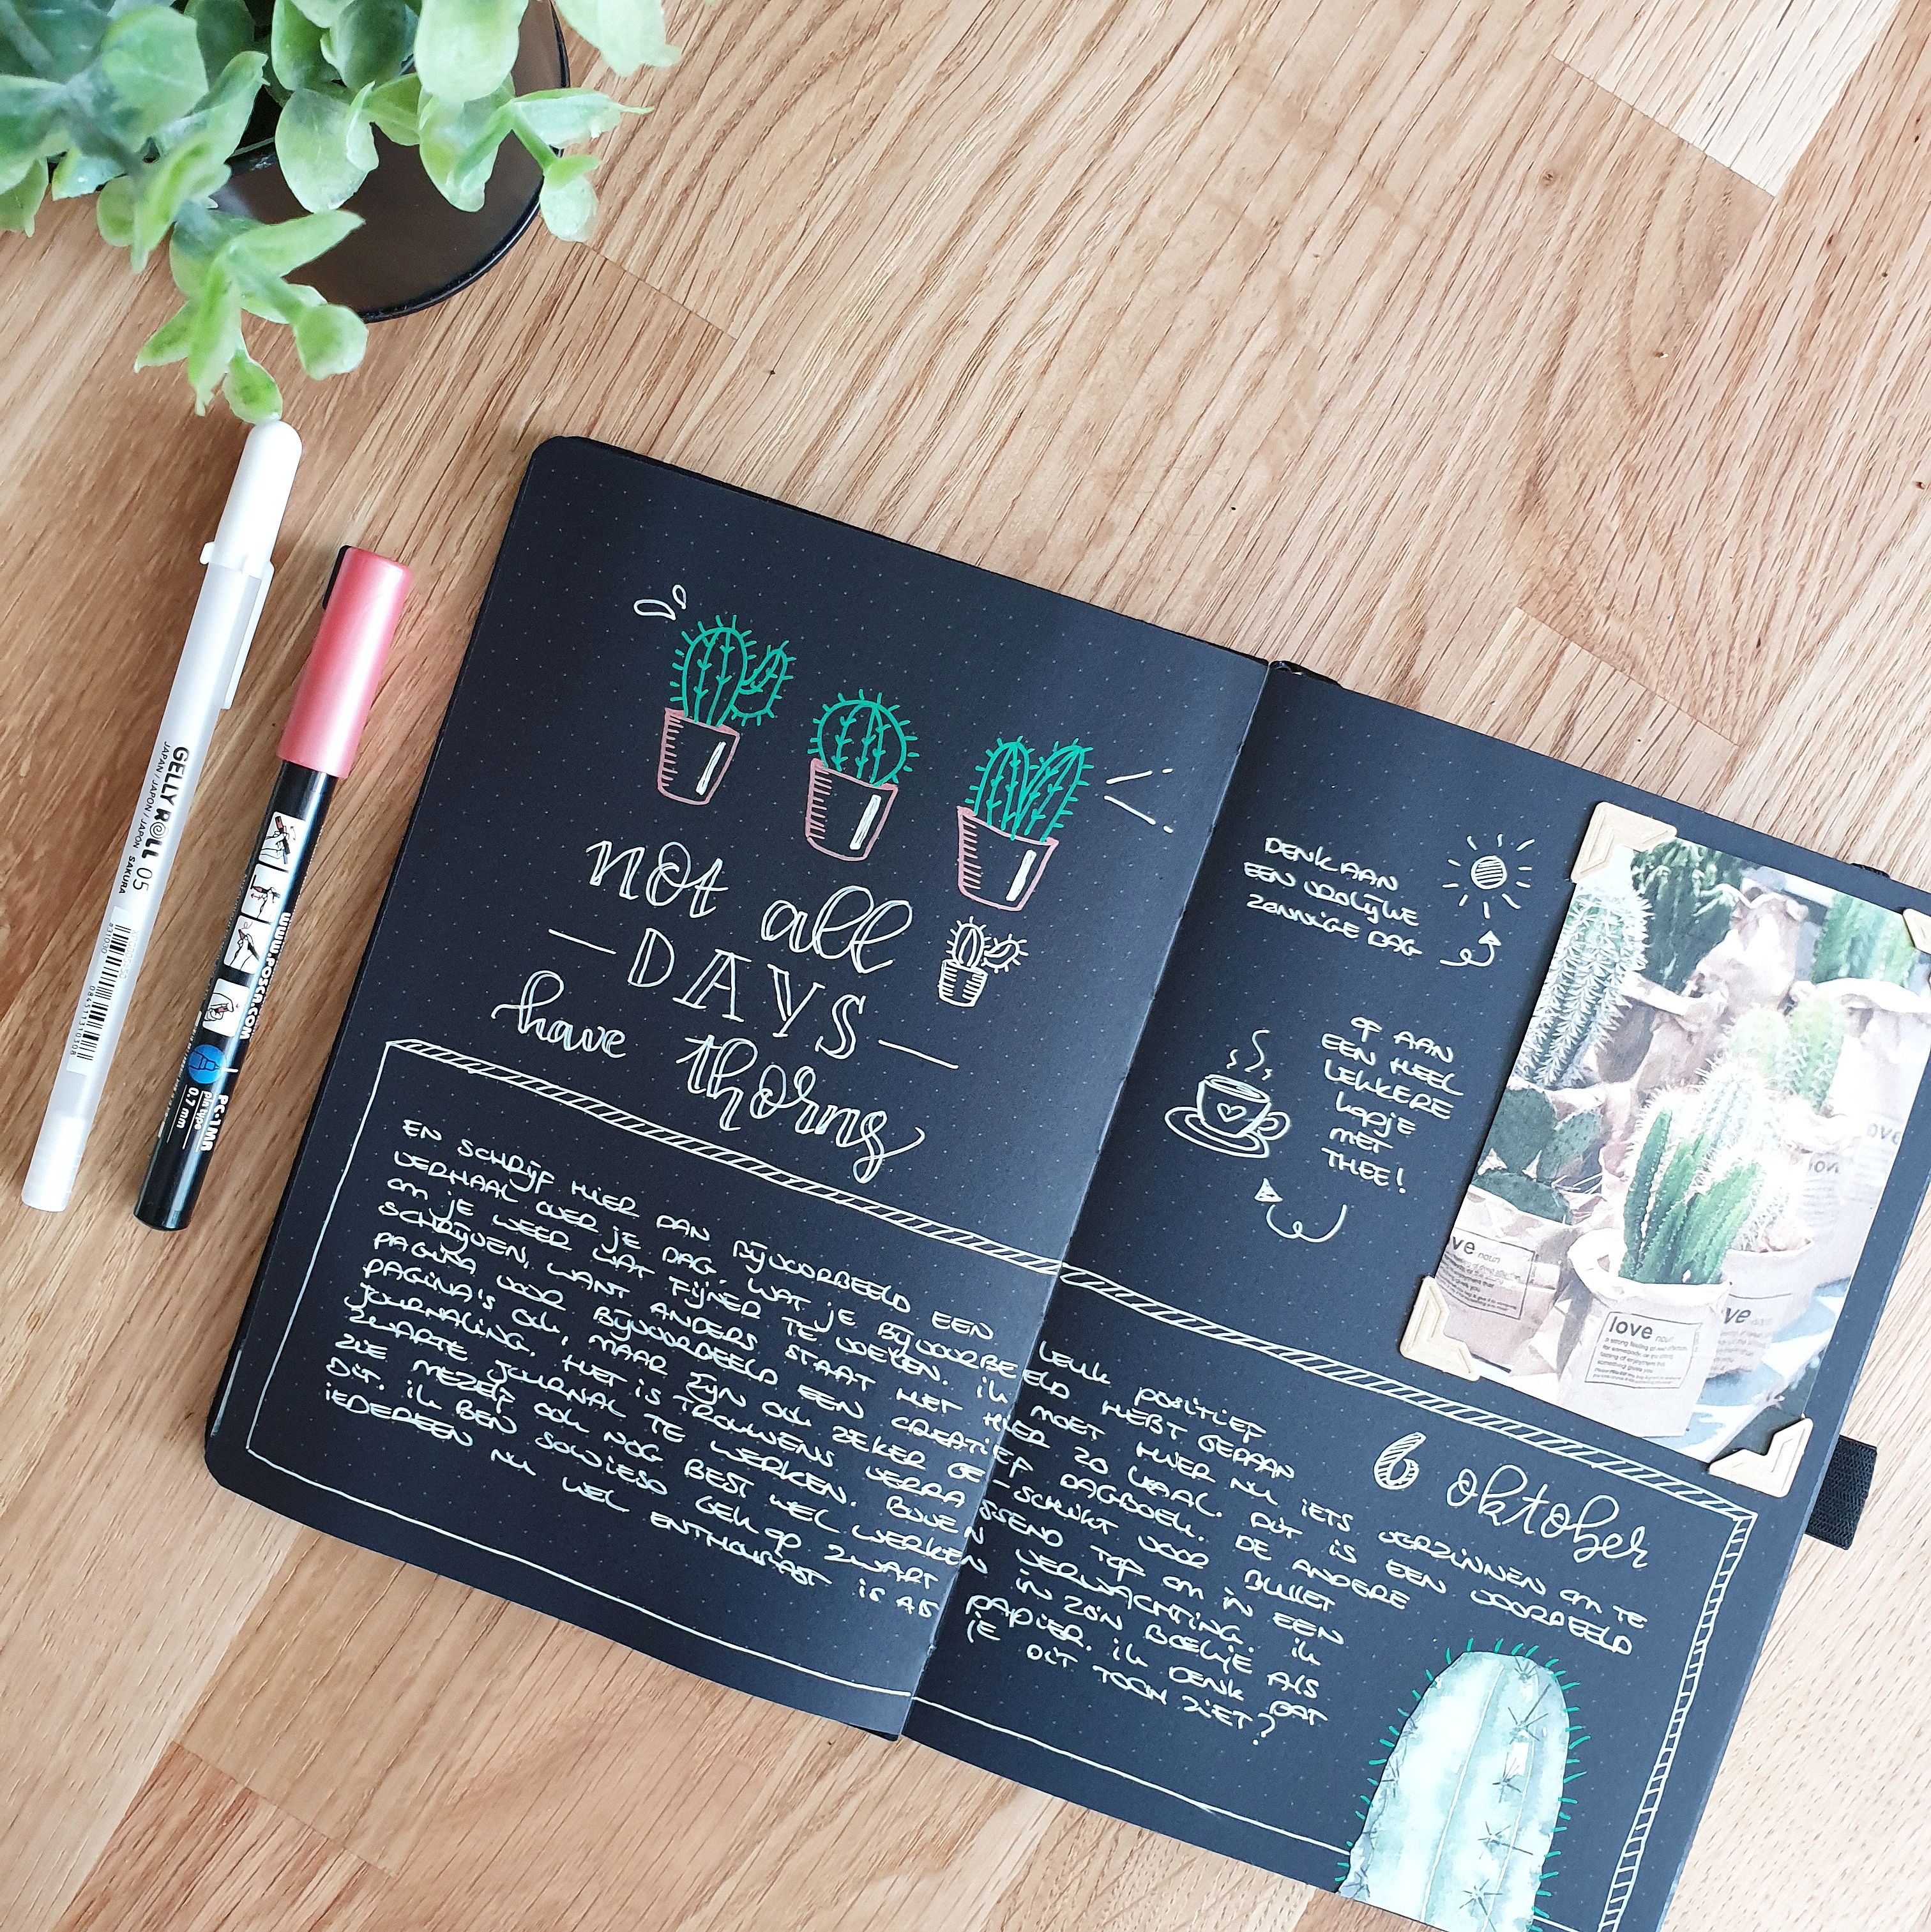 GELLY ROLL 05
JAPAN / JAPON / JAPÓN SAKURA
www.POSCA.COM
PC-1MR
pin type
0.7 mm
not all
— DAYS —
have thorns
DENK AAN
EEN VROLIJKE
ZONNIGE DAG
OF AAN
EEN HEEL
LEKKERE
kopje
MET
THEE!
love noun
6 oktober
EN SCHRIJF HIER DAN BIJVOORBEELD EEN LEUK POSITIEF
VERHAAL OVER JE DAG. WAT JE BIJVOORBEELD HEBT GEDAAN
OM JE WEER WAT FIJNER TE VOELEN. IK MOET HIER NU IETS VERZINNEN OM TE
SCHRIJVEN, WANT ANDERS STAAT HET HIER ZO KAAL. DIT IS EEN VOORBEELD
PAGINA VOOR BIJVOORBEELD EEN CREATIEF DAGBOEK. DE ANDERE
PAGINA'S OOK, MAAR ZIJN OOK ZEKER GE-SCHIKT VOOR BULLET
JOURNALING. HET IS TROUWENS VERRASSEND TOF OM IN EEN
ZWARTE JOURNAL TE WERKEN. BOVEN VERWACHTING. IK
ZIE MEZELF OOK NOG BEST WEL WERKEN IN ZO'N BOEKJE ALS
DIT. IK BEN SOWIESO GEK OP ZWART PAPIER. IK DENK DAT
IEDEREEN NU WEL ENTHOUSIAST IS ALS JE DIT TOCH ZIET?